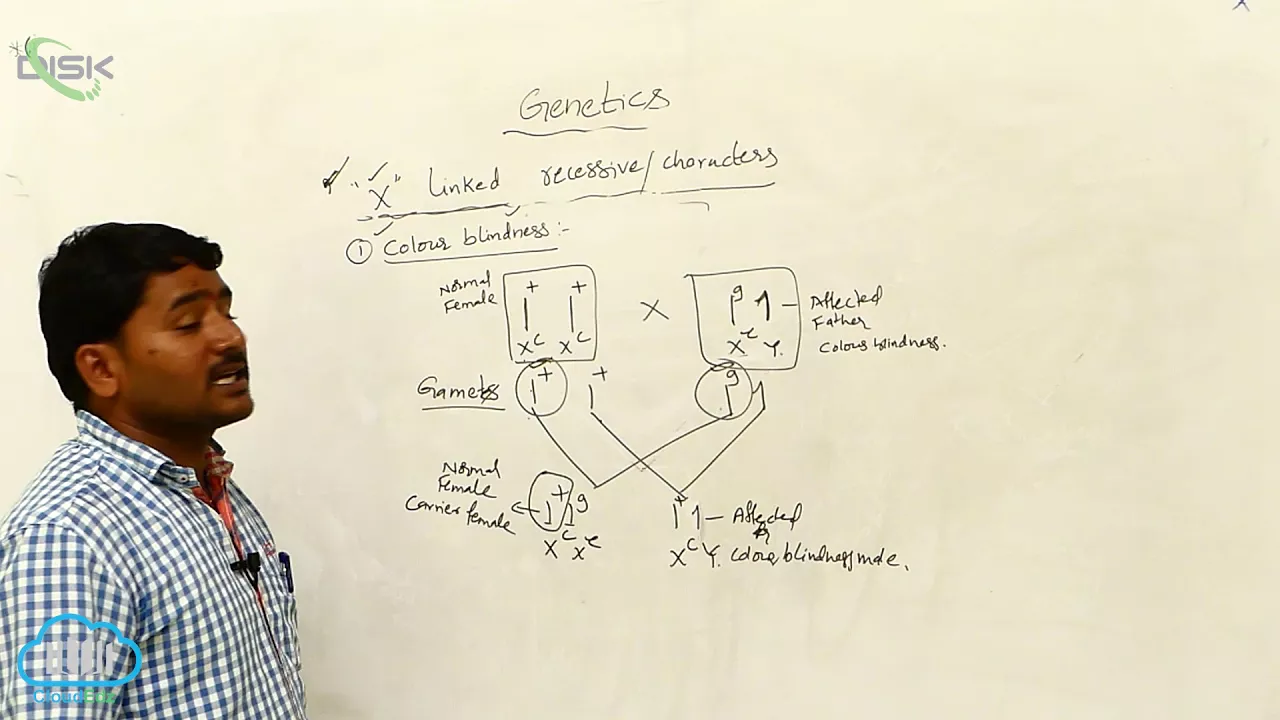 DISK
Genetics
"X" linked recessive/characters
① Colour blindness:-
Normal
Female
+ +
X^C X^C
X
g
X^c Y.
Affected
Father
Colour blindness.
Gametes
+ + g
Normal
Female
Carrier female
+ g
X^C X^c
+
X^C Y.
Affected
Colour blindness male.
CloudBox